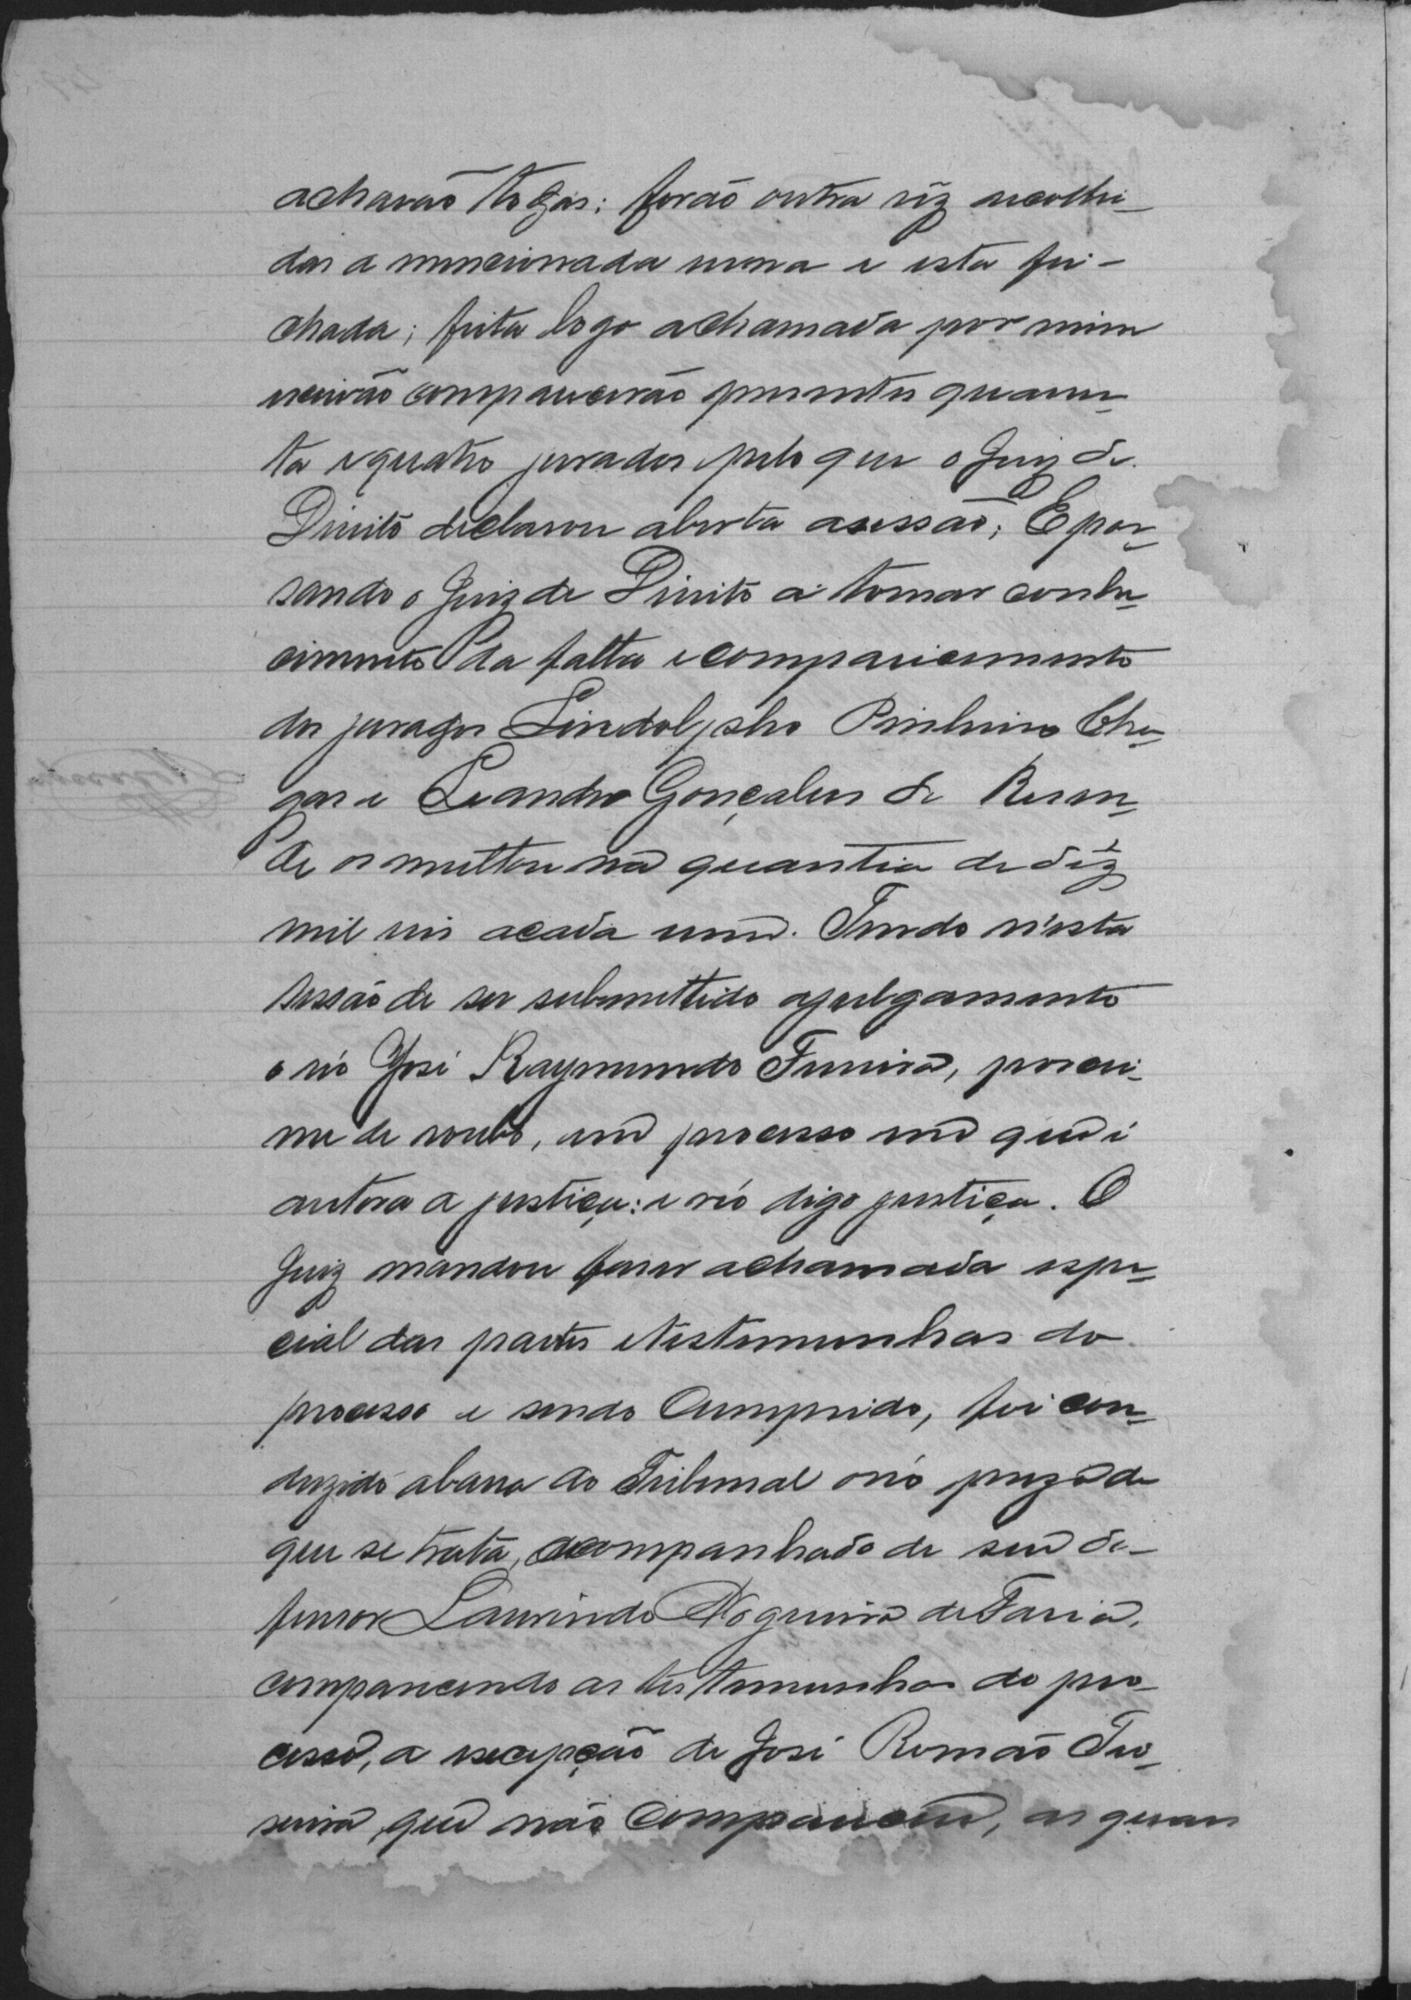 achavão todas: forão outra vêz recolhi-
das a mencionada urna e esta fei-
chada; feita logo achamada por mim
escrivão comparecerão presentes quaren-
ta equatro jurados pelo que o Juiz de
Direito declarou aberta asessão; E pas-
sando o Juiz de Direito a tomar conhe-
cimento da falta ecomparecimento
dos jurados Lindolpho Pinheiro Cha-
gas e Leandro Gonçalves de Resen-
de os multou na quantia de déz
mil reis acada um. Tendo n'esta
sessão de ser submettido ajulgamento
o réo José Raymundo Ferreira, por cri-
me de roubo, em processo em que é
autora a justiça: e réo digo justiça. O
Juiz mandou faser achamada espe-
cial das partes etestemunhas do
processo e sendo Cumprido, foi con-
duzido abarra do Tribunal oréo prezo de
que se trata, acompanhado de seu de-
fensor Laurindo Nogueira de Faria,
comparecendo as testemunhas do pro-
cesso, a excepção de José Romão
que não Compareceu, as quaes